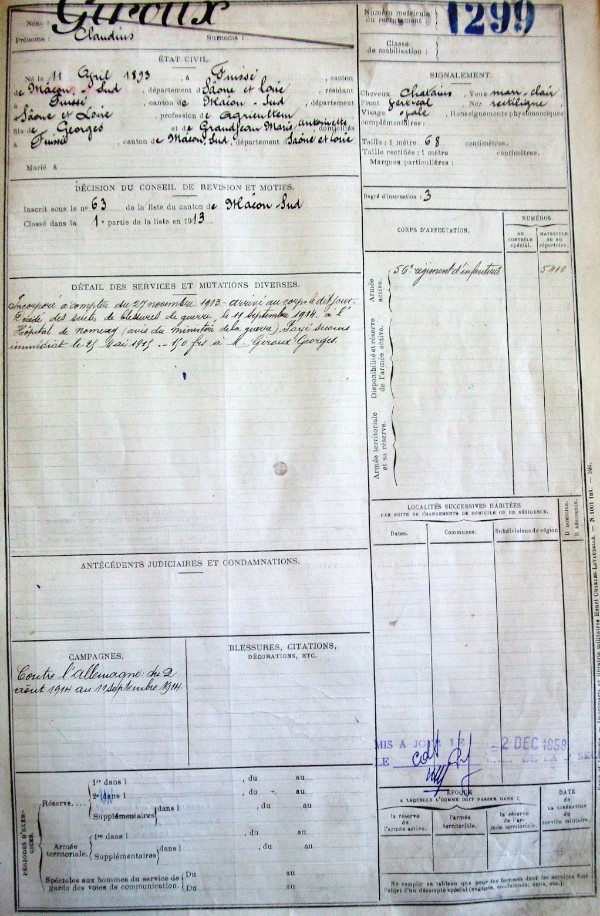 Nom : GIROUX
Prénoms : Claudius Surnoms :
Numéro matricule du recrutement : 1299
Classe de mobilisation :
ÉTAT CIVIL.
Né le 11 Avril 1893, à Fuissé, canton
de Mâcon-Sud, département de Saône et Loire, résidant
Fuissé, canton de Macon-Sud, département
Saône et Loire, profession de agriculteur
fils de Georges et de Grandjean Marie Antoinette domiciliés
à Fuissé, canton de Macon Sud, département Saône et Loire
Marié à
SIGNALEMENT.
Cheveux chatains Yeux marr. clair
Front vertical Nez rectiligne
Visage ovale Renseignements physionomiques
complémentaires :
Taille : 1 mètre 68 centimètres.
Taille rectifiée : 1 mètre centimètres.
Marques particulières :
DÉCISION DU CONSEIL DE REVISION ET MOTIFS.
Inscrit sous le n° 63 de la liste du canton de Macon-Sud
Classé dans la 1e partie de la liste en 1913
Degré d'instruction : 3
CORPS D'AFFECTATION.
NUMÉROS
AU CONTRÔLE SPÉCIAL.
MATRICULE OU AU RÉPERTOIRE.
Armée active.
56e régiment d'infanterie
Disponibilité et réserve de l'armée active.
Armée territoriale et sa réserve.
DÉTAIL DES SERVICES ET MUTATIONS DIVERSES.
Incorporé à compter du 27 novembre 1913 - arrivé au corps à dit jour.
Décédé des suites de blessures de guerre, le 11 septembre 1914 à l'
Hôpital de (avis du ministère de la guerre). Payé secours
immédiat le 25 Mai 1915 - 150 frs à M. Giroux Georges.
LOCALITÉS SUCCESSIVES HABITÉES
PAR SUITE DE CHANGEMENTS DE DOMICILE OU DE RÉSIDENCE.
Dates.
Communes.
Subdivisions de région
D. DOMICILE.
R. RÉSIDENCE.
ANTÉCÉDENTS JUDICIAIRES ET CONDAMNATIONS.
CAMPAGNES.
Contre l'allemagne : du 2
août 1914 au 11 septembre 1914
BLESSURES, CITATIONS,
DÉCORATIONS, ETC.
MIS A JOUR LE -2 DEC 1959
LE DE LA
PÉRIODES D'EXERCICES.
Réserve.
1re dans l , du au
2e dans l , du au
Supplémentaires dans l , du au
Armée territoriale.
1re dans l , du au
Supplémentaires dans l , du au
Spéciales aux hommes du service de
garde des voies de communication.
Du au
Du au
ÉPOQUE
A LAQUELLE L'HOMME DOIT PASSER DANS :
la réserve de l'armée active.
l'armée territoriale.
la réserve de l'armée territoriale.
DATE
de la
LIBÉRATION
du
service militaire.
Ne remplir ce tableau que pour les hommes dont les services font
l'objet d'un décompte spécial (engagés, condamnés, omis, etc.)